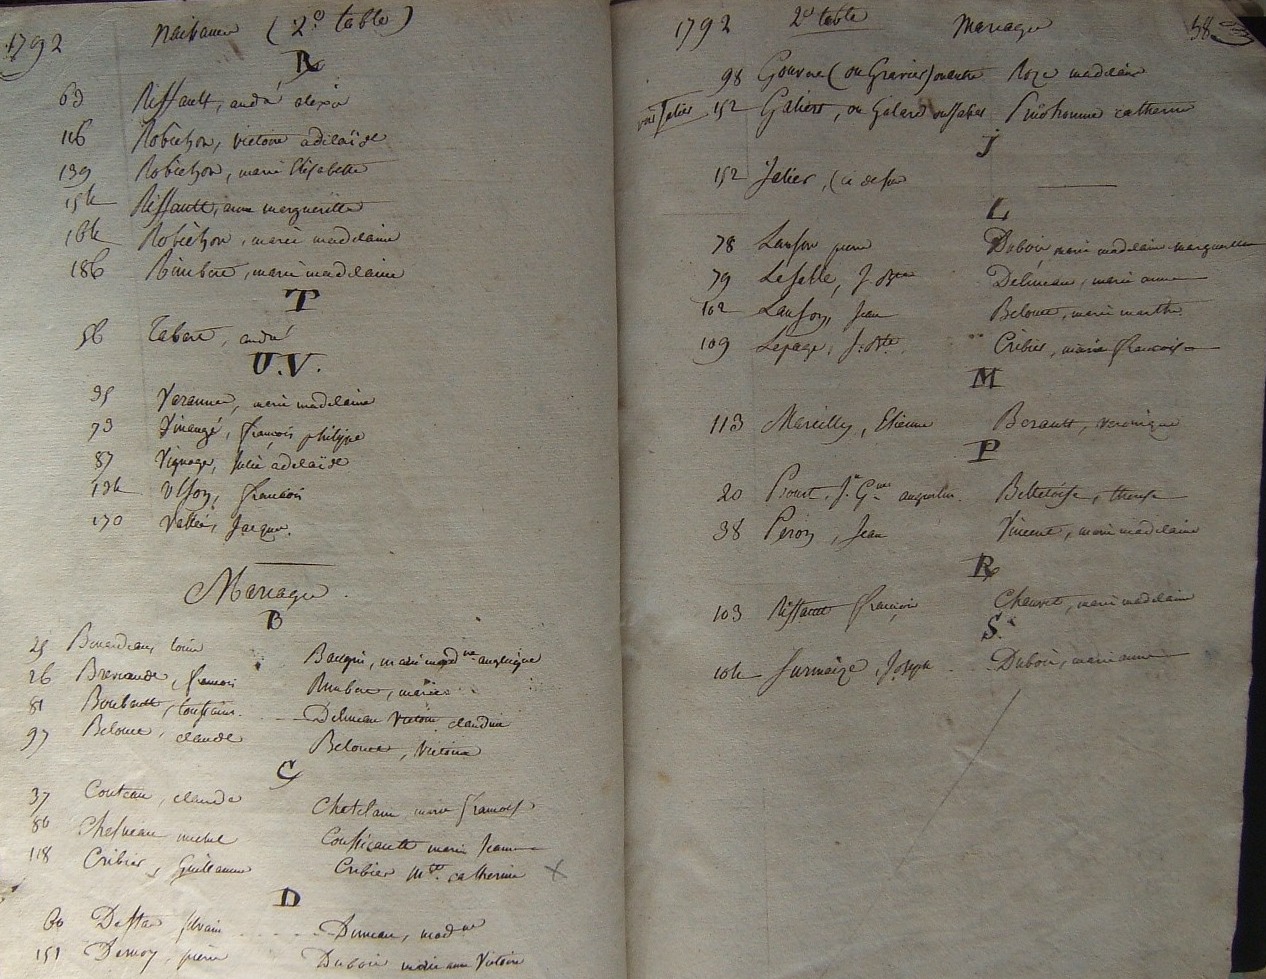 1792 Naissances (2e table)
R
69 Riffault, andré alexis
116 Robichon, victoire adelaïde
139 Robichon, marie Elisabette
154 Riffault, anne margueritte
164 Robichon, marie madelaine
186 Rimbert, marie madelaine
T
56 Tabart, andré
U.V.
35 Varanne, marie madelaine
73 Vinangé, françois philippe
87 Vignage, Julie adelaïde
134 françois
170 Vallée, Jacques.
Mariages
B
25 louis Marie angelique
26 françois Rimbert, marie
81 toussaint Delineau Victoire claudine
97 Belouet, claude Belouet, Victoire
C
37 Couteau, claude Chatelain marie françoise
86 Chesneau michel marie Jeanne
118 Cribier, Guillaume Cribier Mie catherine
D
60 Silvain
151 pierre Dubois marie anne Victoire
1792 2e table Mariages 58
98 (ou Gravier) Roze madelaine
voir Jalier 152 Galier, ou Galard ou Jalier Prudhomme catherine
J
152 Jalier, (ci dessus
L
78 Lanson pierre Dubois, marie madelaine margueritte
79 Lasalle, J. Bte Delineau, marie anne
102 Lanson, Jean Belouet, marie marthe
109 Lepage, J. Bte. Cribier, marie françoise
M
113 Marcilly, Etienne Berault, veronique
P
20 augustin. therese
38 Peron, Jean Vincent, marie madelaine
R
103 Riffault françois Chauvet, marie madelaine
S.
104 Surmaize, Joseph Dubois, marie anne